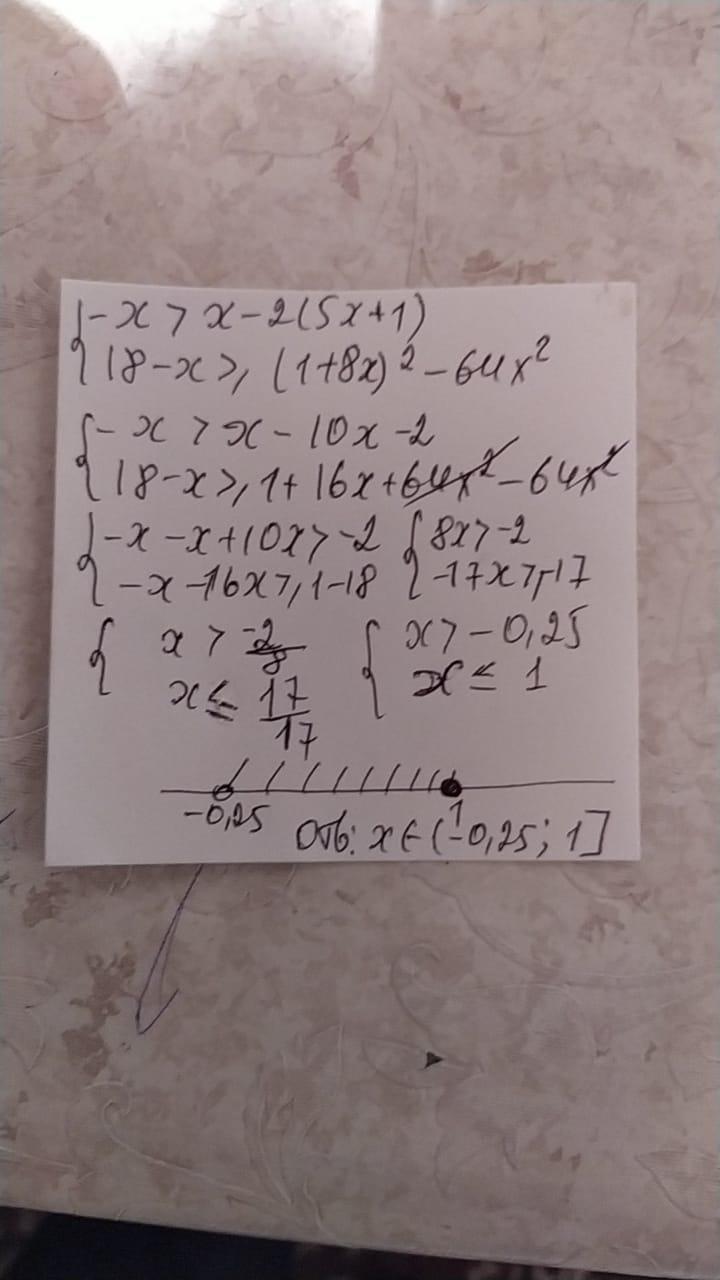 {-x > x-2(5x+1)
{18-x ≥ (1+8x)²-64x²
{-x > x-10x-2
{18-x ≥ 1+16x+64x²-64x²
{-x-x+10x > -2 {8x > -2
{-x-16x ≥ 1-18 {-17x ≥ -17
{x > -2/8 {x > -0,25
{x ≤ 17/17 {x ≤ 1
-0,25 1
Отв: x ∈ (-0,25; 1]